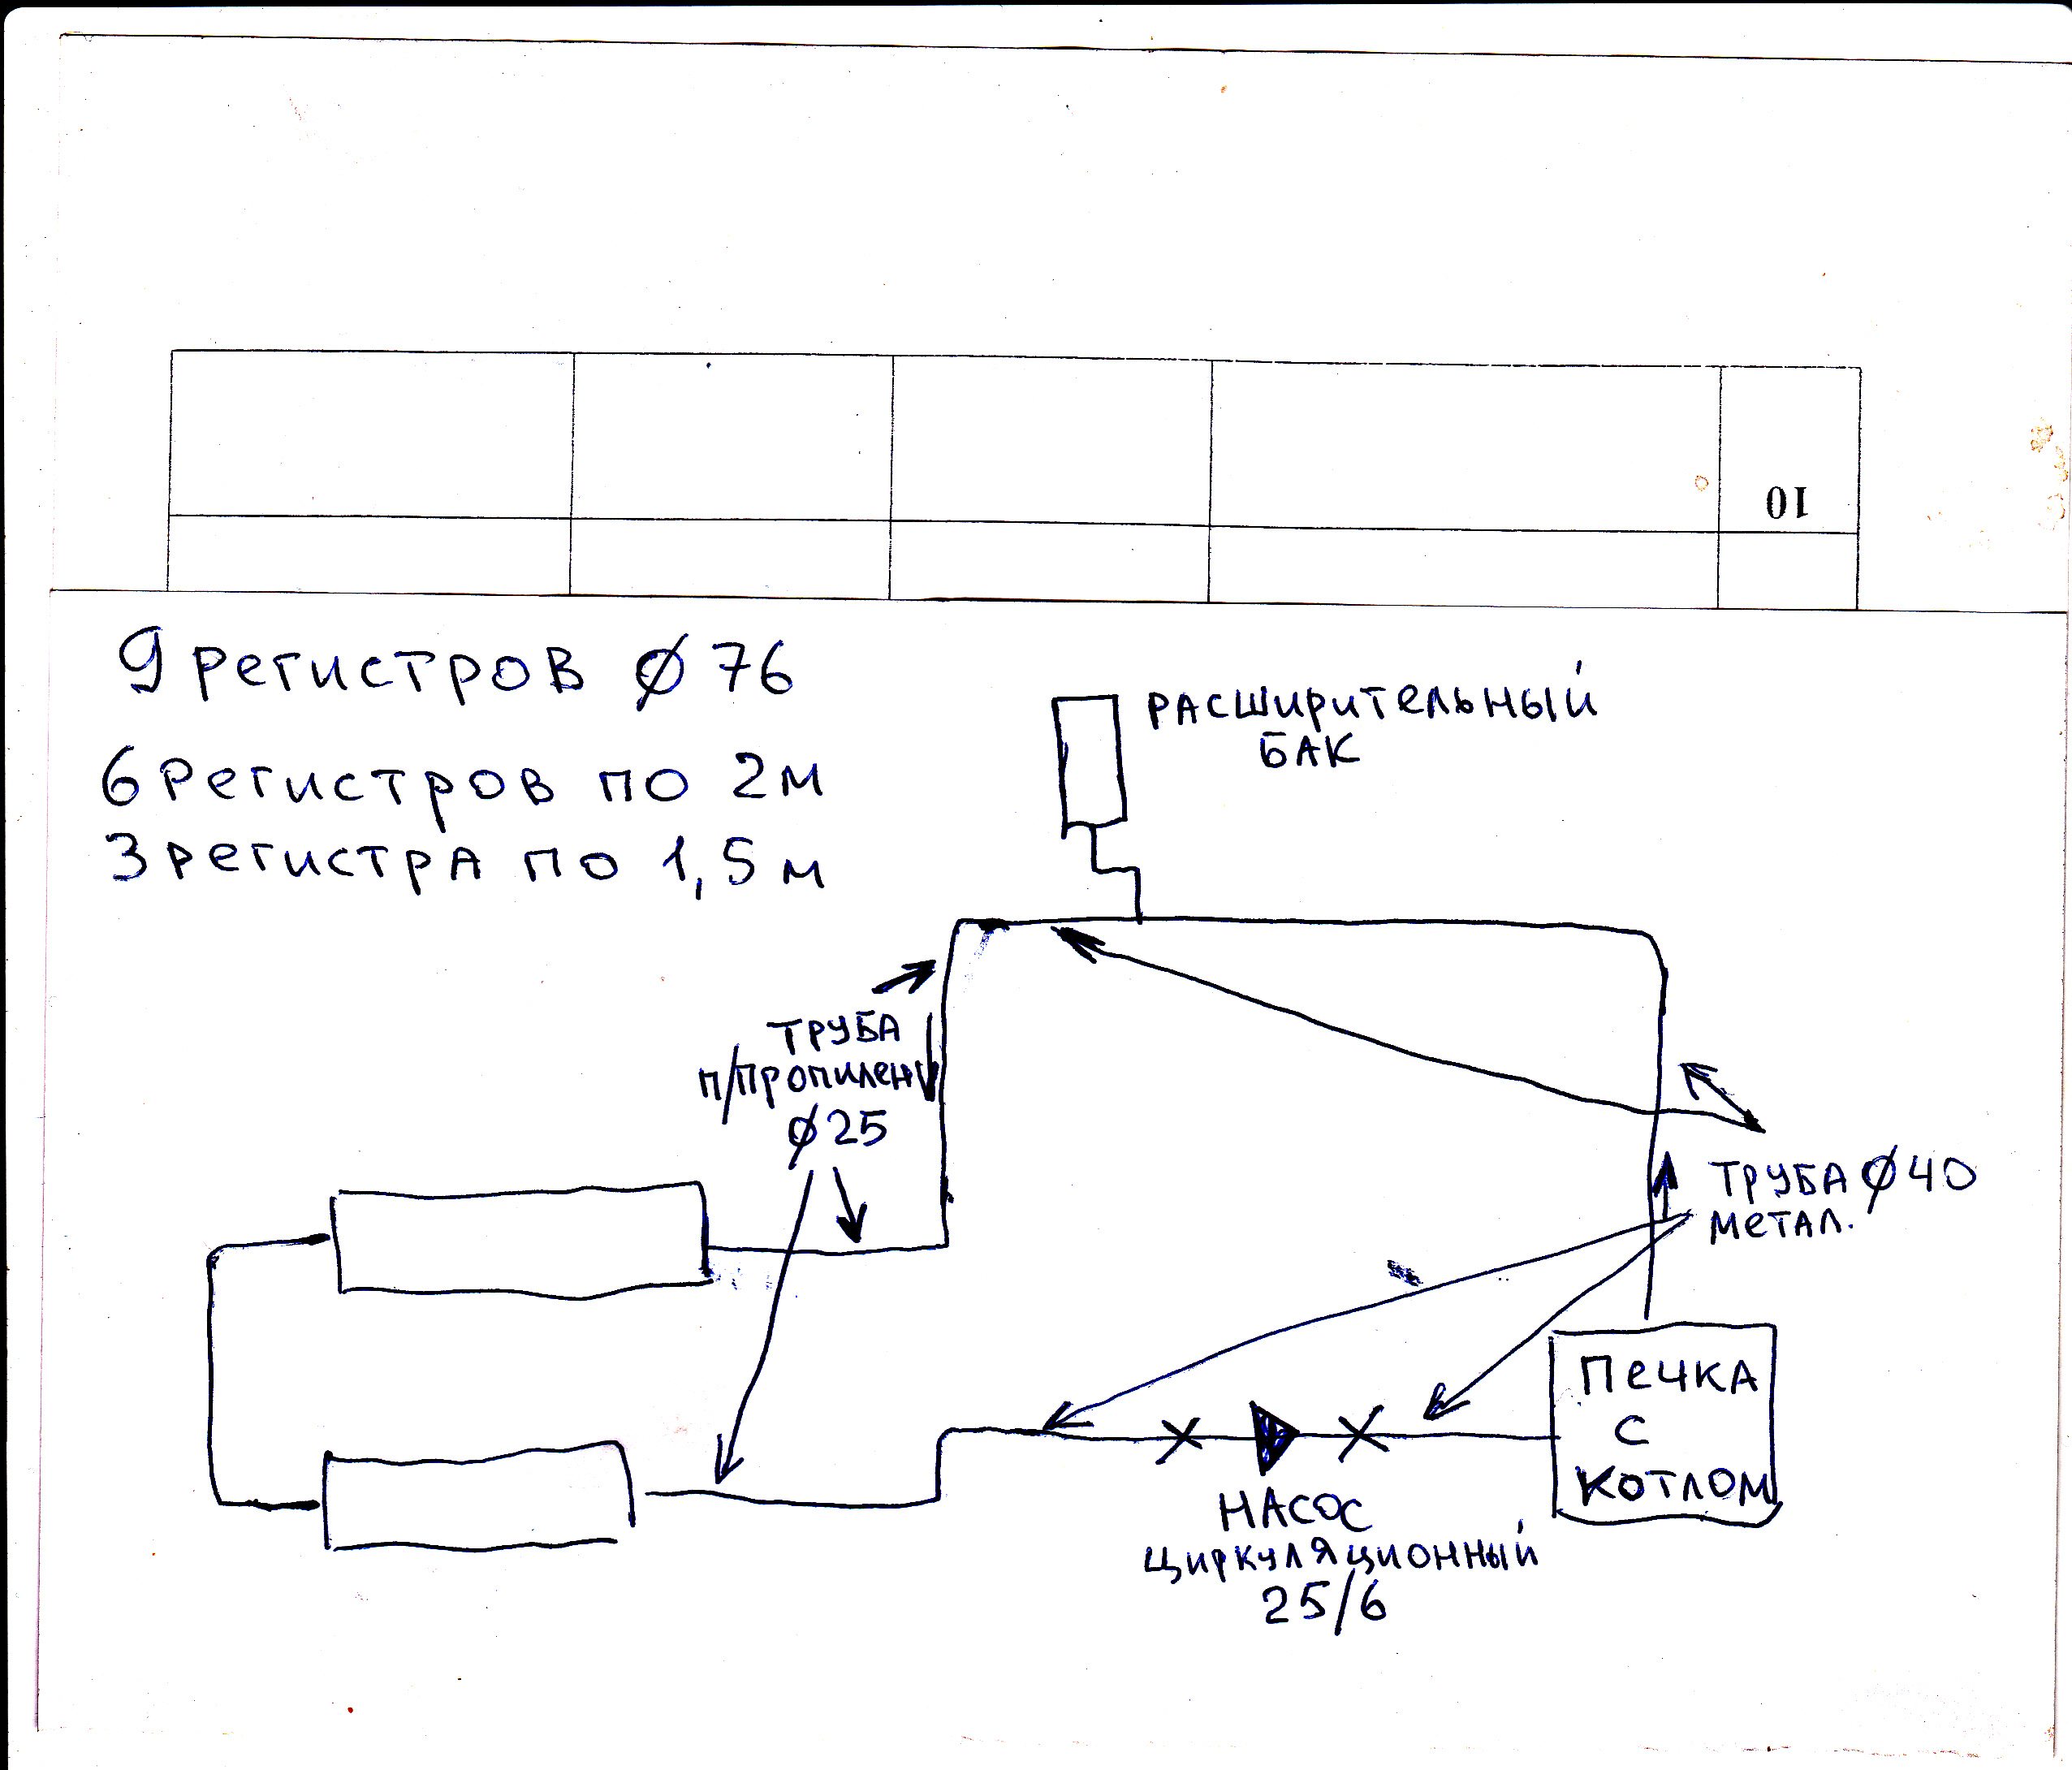 10
9 регистров ⌀ 76
6 регистров по 2м
3 регистра по 1,5 м
РАСШИРИТЕЛЬНЫЙ
БАК
ТРУБА
п/пропилен
⌀ 25
ТРУБА ⌀ 40
метал.
ПЕЧКА
С
КОТЛОМ
НАСОС
ЦИРКУЛЯЦИОННЫЙ
25/6